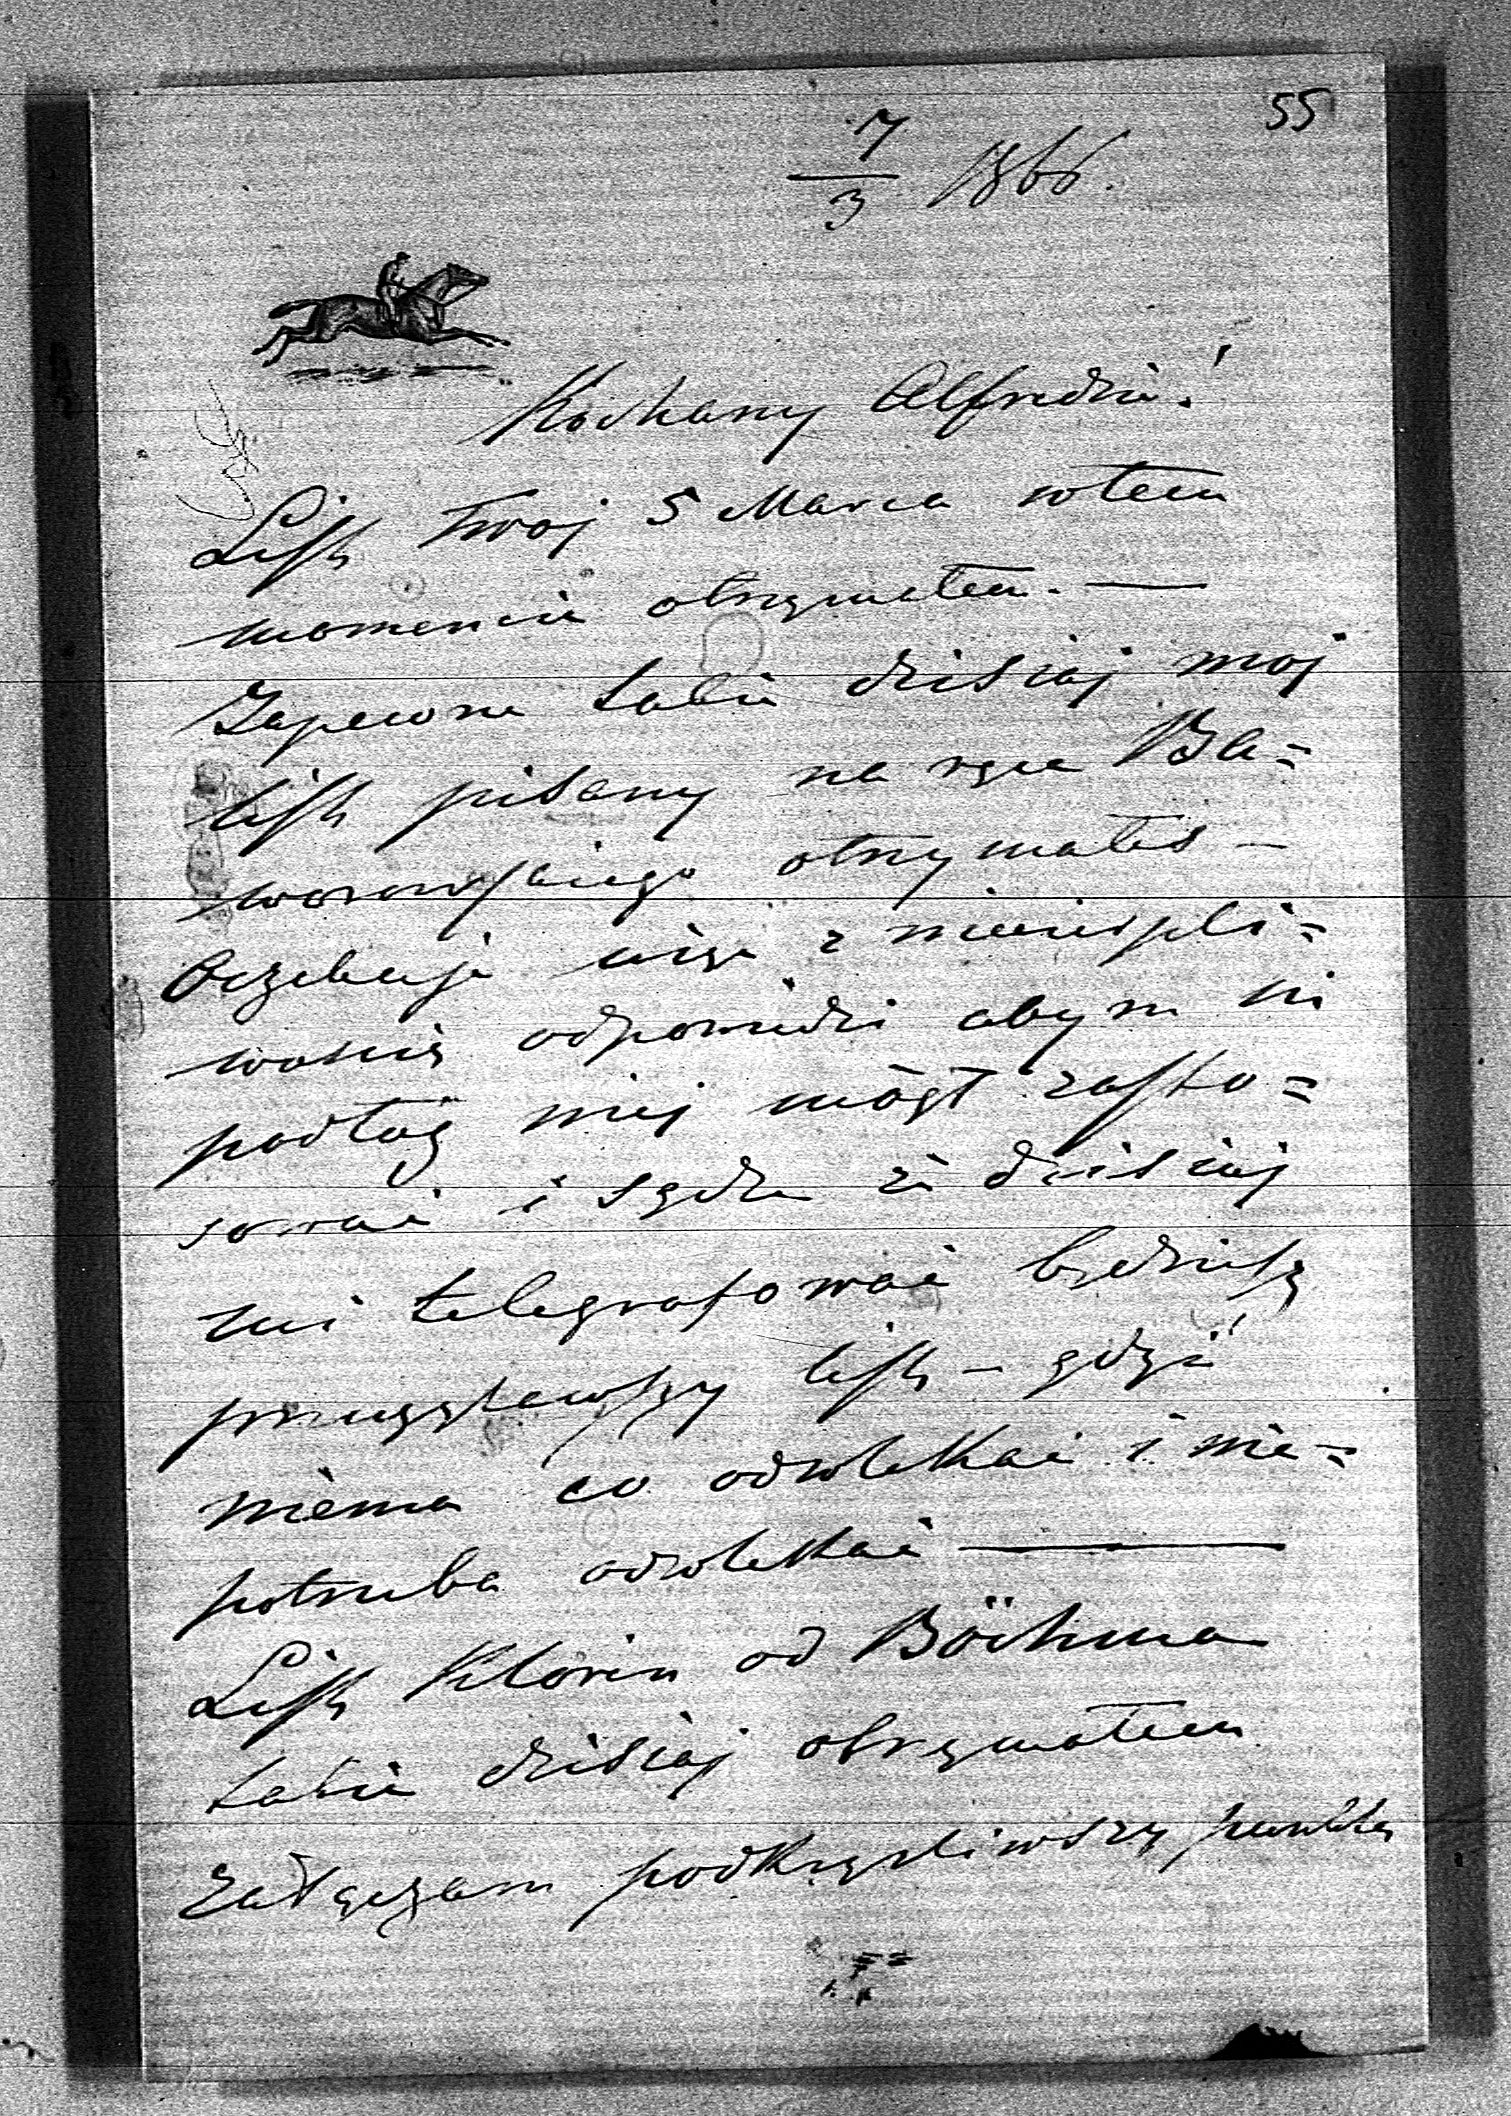 55
7/3 1866.
Kochany Alfredzie!
List Twoj 5 Marca wtem
momencie otrzymałem. —
Zapewne takie dzisiaj moj
list pisany na ręce Ba=
worowskiego otrzymałes —
Oczekuje więc z niecierpli=
woscią odpowiedzi abym się
podłóg niej mógł zasto=
sować i sądze że dzisiaj
mi telegrafowac będziesz
przeczytawszy list — gdyż
niema co odwlekać i nie=
potrzeba odwlekać —
List Kloria od Böhma
takie dzisiaj otrzymałem
załączam podkryśliwszy punkta